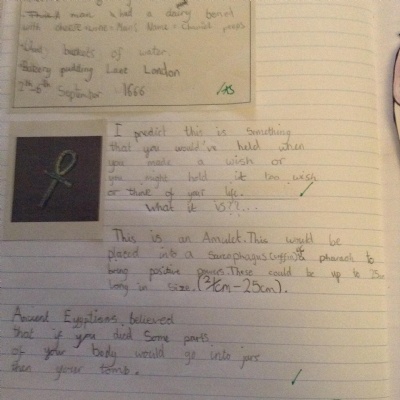 man had a dairy
with cheese
buckets of water
pudding Lane London
2nd-6th September 1666
I predict this is something
that you would've held when
you made a wish or
you might hold it too wish
or think of your life.
What it is??...
This is an Amulet. This would be
placed into a Sarcophagus (coffin) of a pharaoh to
bring positive powers. These could be up to 25cm
long in size. (2½cm-25cm).
Ancient Eygptians believed
that if you died Some parts
of your body would go into jars
then your tomb.